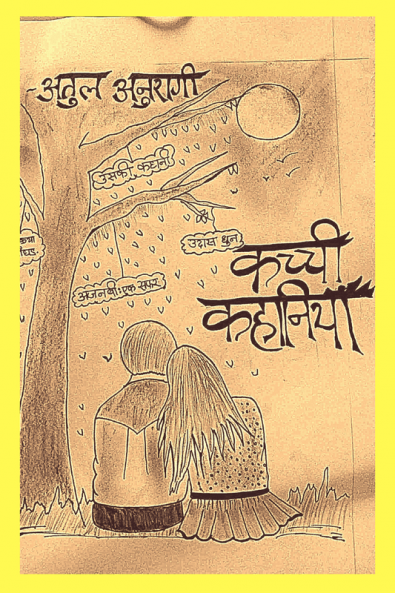 अतुल अनुरागी
उसकी कहानी
उदास धुन
अजनबी: एक सफर
कच्ची
कहानियाँ